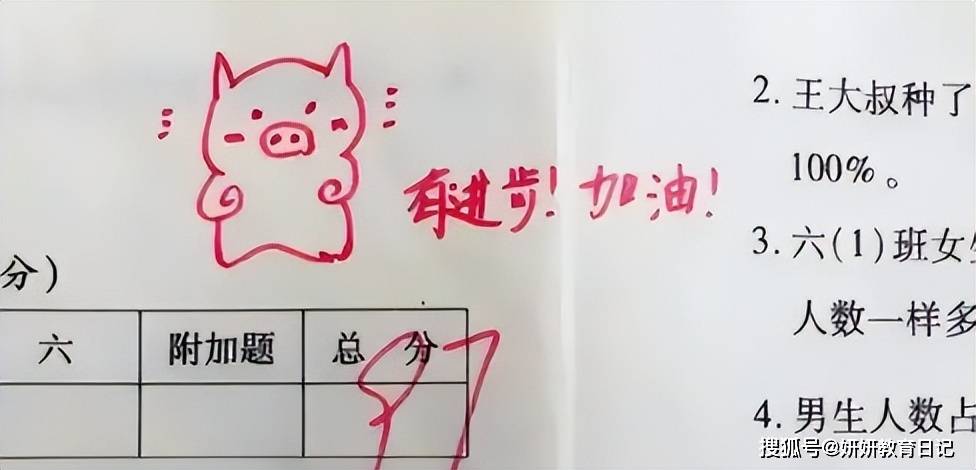 有进步!加油!
分)
六 附加题 总 分
2. 王大叔种了
100%。
3. 六(1)班女
人数一样多
4. 男生人数占
搜狐号@妍妍教育日记